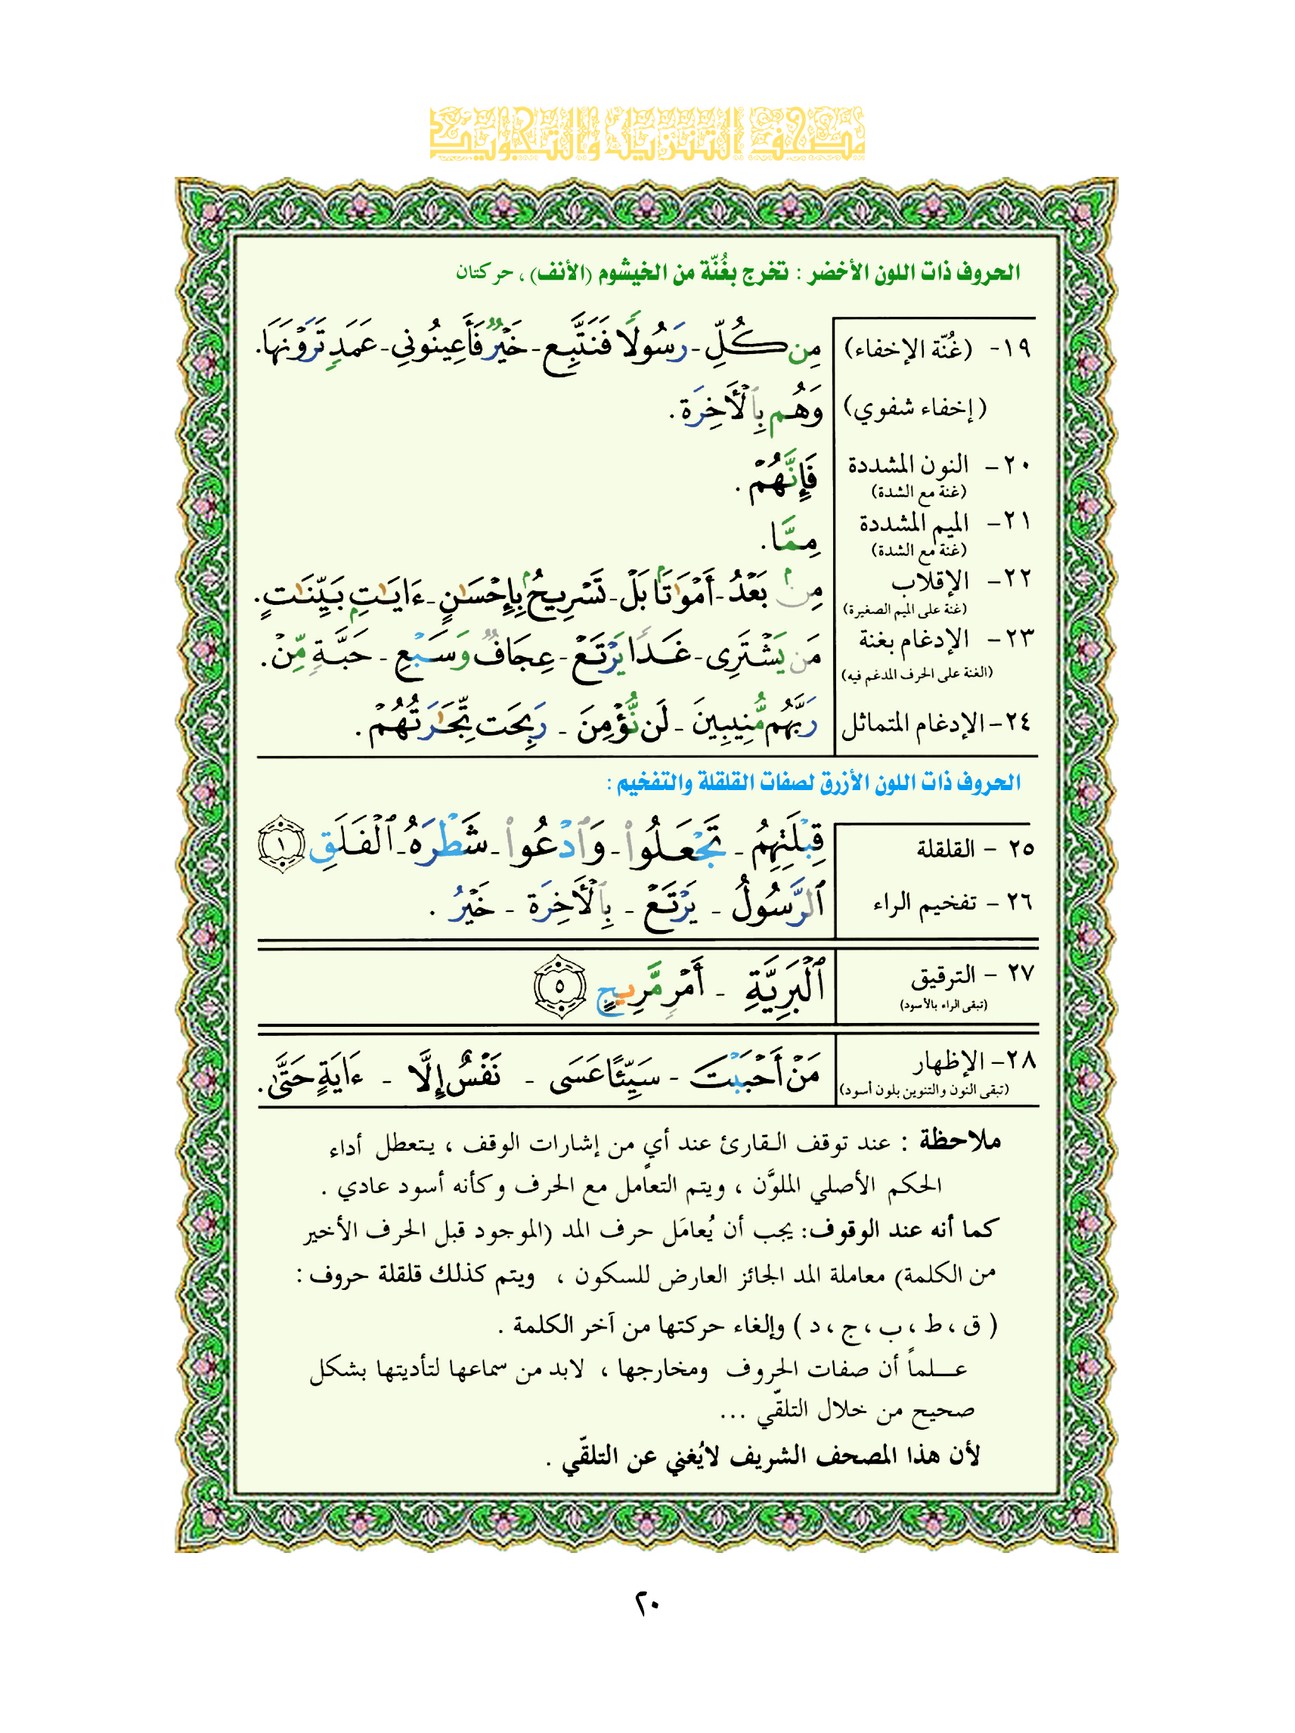 مصحف التنزيل والتجويد
الحروف ذات اللون الأخضر : تخرج بغُنّة من الخيشوم (الأنف) ، حركتان
١٩- (غُنّة الإخفاء) مِن كُلِّ - رَسُولًا فَنَتَّبِعَ - خَيْرٌ فَأَعِينُونِي - عَمَدٍ تَرَوْنَهَا.
(إخفاء شفوي) وَهُم بِٱلْأَخِرَةِ .
٢٠- النون المشددة فَإِنَّهُمْ .
(غنة مع الشدة)
٢١- الميم المشددة مِمَّا .
(غنة مع الشدة)
٢٢- الإقلاب مِنۢ بَعْدُ - أَمْوَٰتَۢا بَلْ - تَسْرِيحُۢ بِإِحْسَٰنٍ - ءَايَٰتِۭ بَيِّنَٰتٍ .
(غنة على الميم الصغيرة)
٢٣- الإدغام بغنة مَن يَشْتَرِى - غَدًا يَرْتَعْ - عِجَافٌ وَسَبْعِ - حَبَّةٍ مِّنْ .
(الغنة على الحرف المدغم فيه)
٢٤- الإدغام المتماثل رَبَّهُم مُّنِيبِينَ - لَن نُّؤْمِنَ - رَبِحَت تِّجَٰرَتُهُمْ .
الحروف ذات اللون الأزرق لصفات القلقلة والتفخيم :
٢٥ - القلقلة قِبْلَتِهِمُ - تَجْعَلُوا۟ - وَٱدْعُوا۟ - شَطْرَهُ - ٱلْفَلَقِ ١
٢٦ - تفخيم الراء ٱلرَّسُولُ - يَرْتَعْ - بِٱلْأَخِرَةِ - خَيْرٌ .
٢٧ - الترقيق ٱلْبَرِيَّةِ - أَمْرٍ مَّرِيجٍ ٥
(تبقى الراء بالأسود)
٢٨- الإظهار مَنْ أَحْبَبْتَ - سَيِّئًا عَسَى - نَفْسٌ إِلَّا - ءَايَةٍ حَتَّىٰ .
(تبقى النون والتنوين بلون أسود)
ملاحظة : عند توقف القارئ عند أيٍ من إشارات الوقف ، يتعطل أداء
الحكم الأصلي الملوَّن ، ويتم التعامل مع الحرف وكأنه أسود عادي .
كما أنه عند الوقوف: يجب أن يُعامَل حرف المد (الموجود قبل الحرف الأخير
من الكلمة) معاملة المد الجائز العارض للسكون ، ويتم كذلك قلقلة حروف :
( ق ، ط ، ب ، ج ، د ) وإلغاء حركتها من آخر الكلمة .
علماً أن صفات الحروف ومخارجها ، لابد من سماعها لتأديتها بشكل
صحيح من خلال التلقّي ...
لأن هذا المصحف الشريف لايُغني عن التلقّي .
٢٠